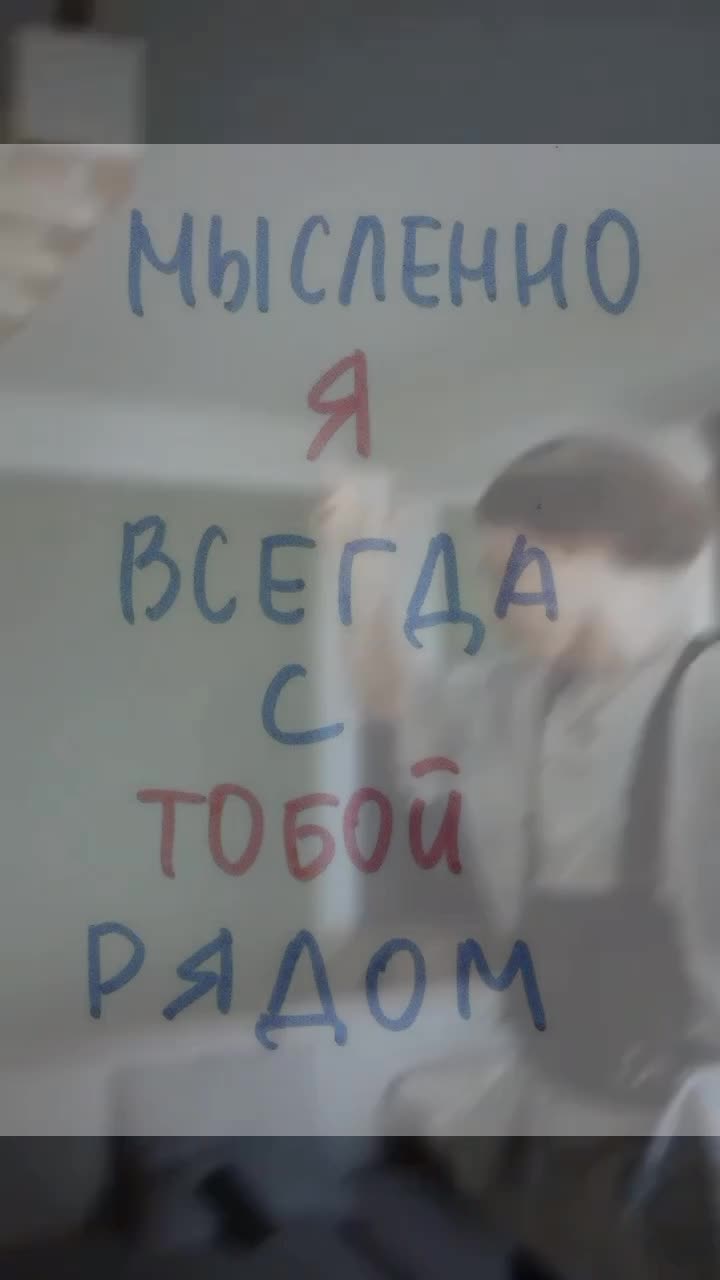 МЫСЛЕННО
Я
ВСЕГДА
С
ТОБОЙ
РЯДОМ